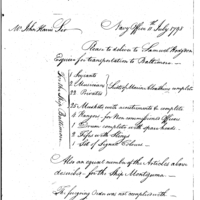 Mr. John Harris Sir Navy Office 11th July 1798
Please to deliver to Samuel Hodgdon
Esquire for transportation to Baltimore
For the Ship Baltimore
2 Sergeants
2 Musicians
22 Privates
Suits of Marine Cloathing complete
25 Muskets with accoutrements complete
4 for Non commissioned Officers
1 Drum complete with
2 Fifes with Slings
1 Set of Signal Colours
Also an equal number of the Articles above
described for the Ship Montezuma
The forgoing Order was not complied with